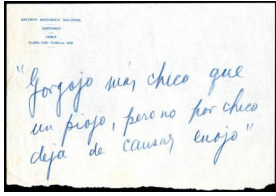 ARCHIVO HISTORICO NACIONAL
SANTIAGO
CHILE
"Gorgojo más chico que
un piojo, pero no por chico
deja de causar enojo"